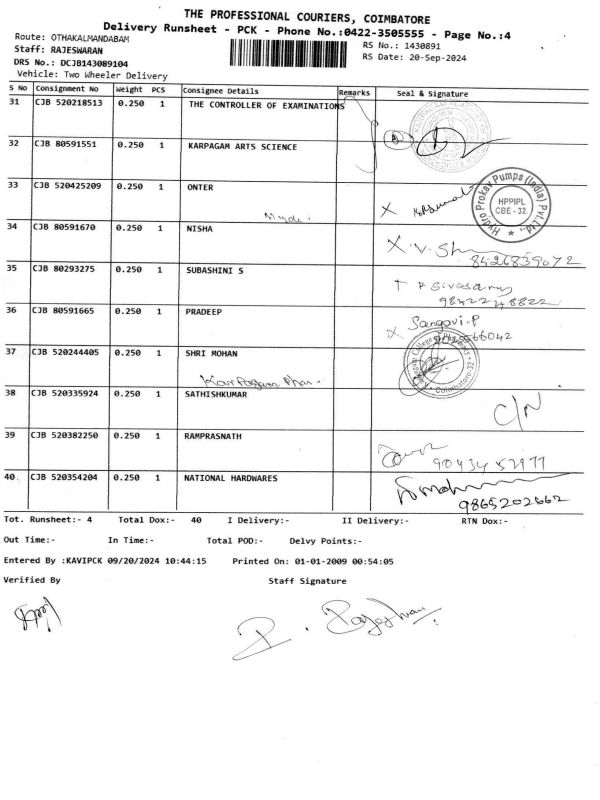 THE PROFESSIONAL COURIERS, COIMBATORE
Delivery Runsheet - PCK - Phone No.:0422-3505555 - Page No.:4
Route: OTHAKALMANDABAM
RS No.: 1430891
Staff: RAJESWARAN
RS Date: 20-Sep-2024
DRS No.: DCJB143089104
Vehicle: Two Wheeler Delivery
S No Consignment No Weight PCS Consignee Details Remarks Seal & Signature
31 CJB 520218513 0.250 1 THE CONTROLLER OF EXAMINATIONS
32 CJB 80591551 0.250 1 KARPAGAM ARTS SCIENCE
33 CJB 520425209 0.250 1 ONTER
Hydro Prokav Pumps (India) Pvt.Ltd.,
HPPIPL
CBE - 32.
34 CJB 80591670 0.250 1 NISHA
8526839072
35 CJB 80293275 0.250 1 SUBASHINI S
9842248822
36 CJB 80591665 0.250 1 PRADEEP
Sangavi.P
37 CJB 520244405 0.250 1 SHRI MOHAN
Coimbatore-32
38 CJB 520335924 0.250 1 SATHISHKUMAR
C/N
39 CJB 520382250 0.250 1 RAMPRASNATH
40 CJB 520354204 0.250 1 NATIONAL HARDWARES
9865202662
Tot. Runsheet:- 4 Total Dox:- 40 I Delivery:- II Delivery:- RTN Dox:-
Out Time:- In Time:- Total POD:- Delvy Points:-
Entered By :KAVIPCK 09/20/2024 10:44:15 Printed On: 01-01-2009 00:54:05
Verified By Staff Signature